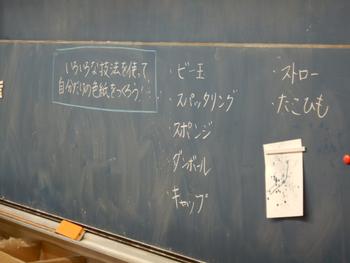 いろいろな技法を使って、
自分だけの色紙をつくろう!
・ビー玉
・スパッタリング
・スポンジ
・ダンボール
・キャップ
・ストロー
・たこひも